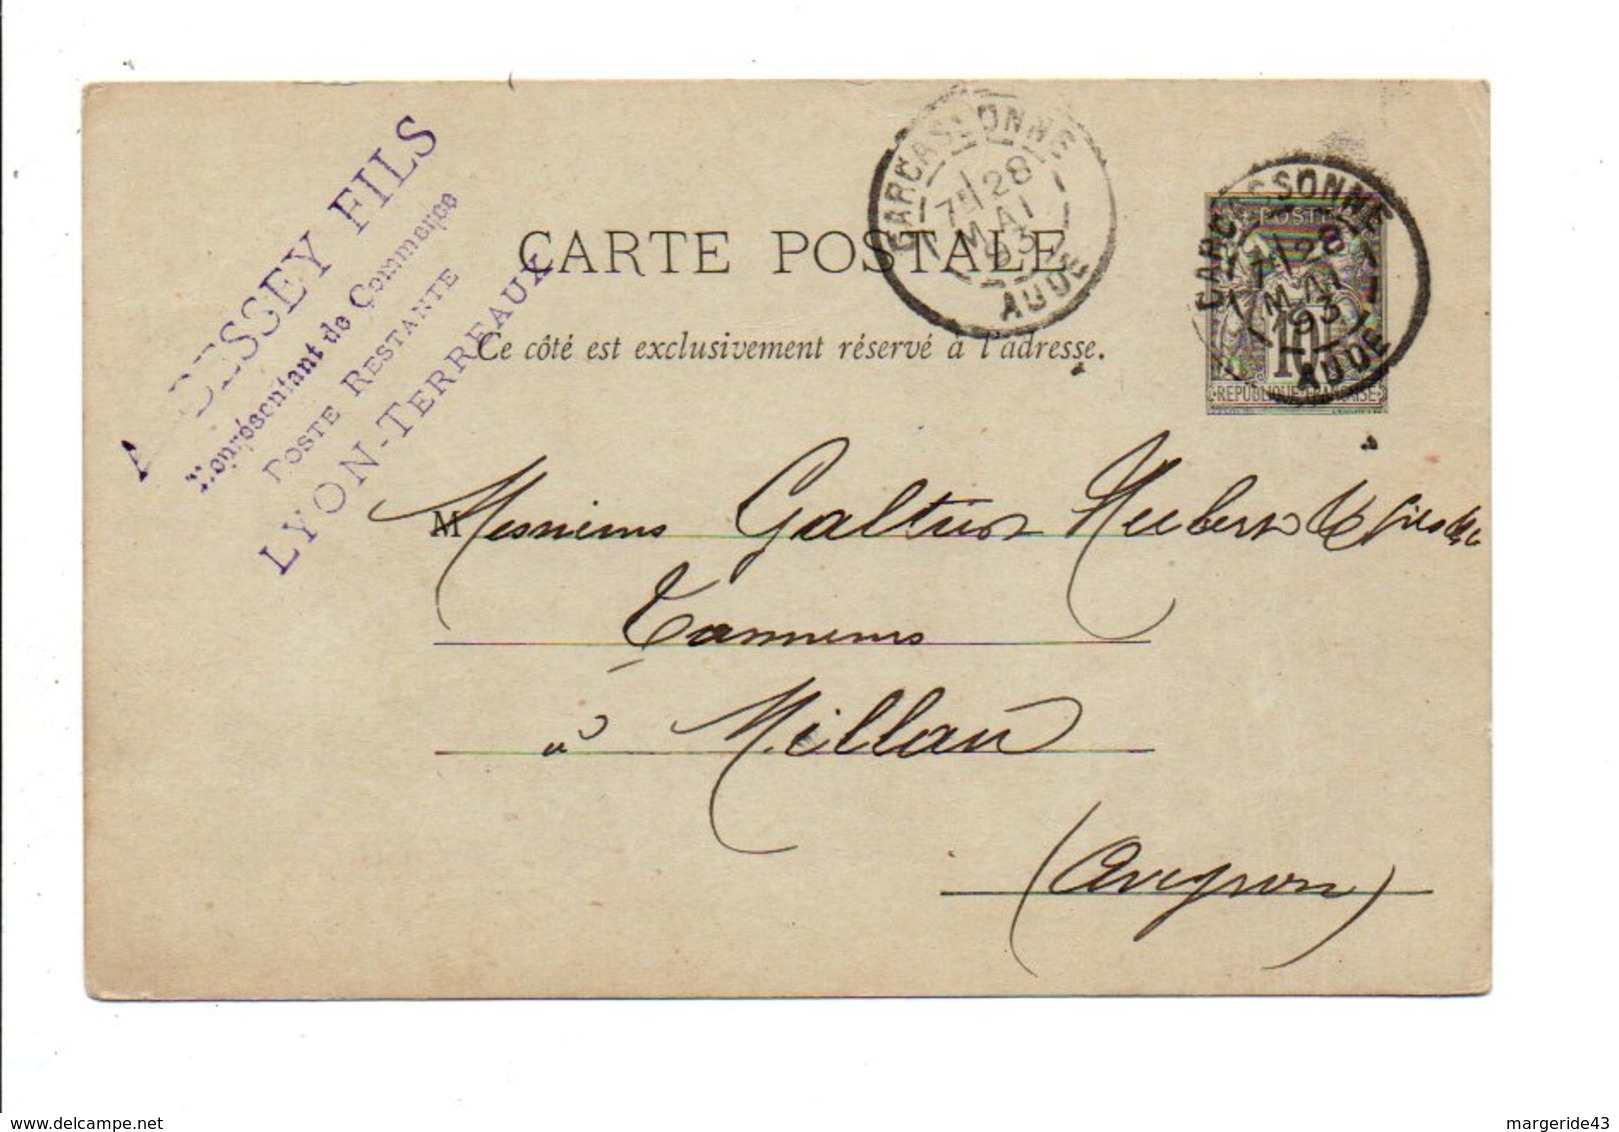 BESSEY FILS
Représentant de Commerce
POSTE RESTANTE
LYON-TERREAUX
CARTE POSTALE
Ce côté est exclusivement réservé à l'adresse.
CARCASSONNE
28
MAI
93
AUDE
CARCASSONNE
28
MAI
93
AUDE
POSTES
10
REPUBLIQUE FRANÇAISE
M Messieurs Galtier Hubert & fils
Tanneurs
à Millau
(Aveyron)
delcampe.net
margeride43